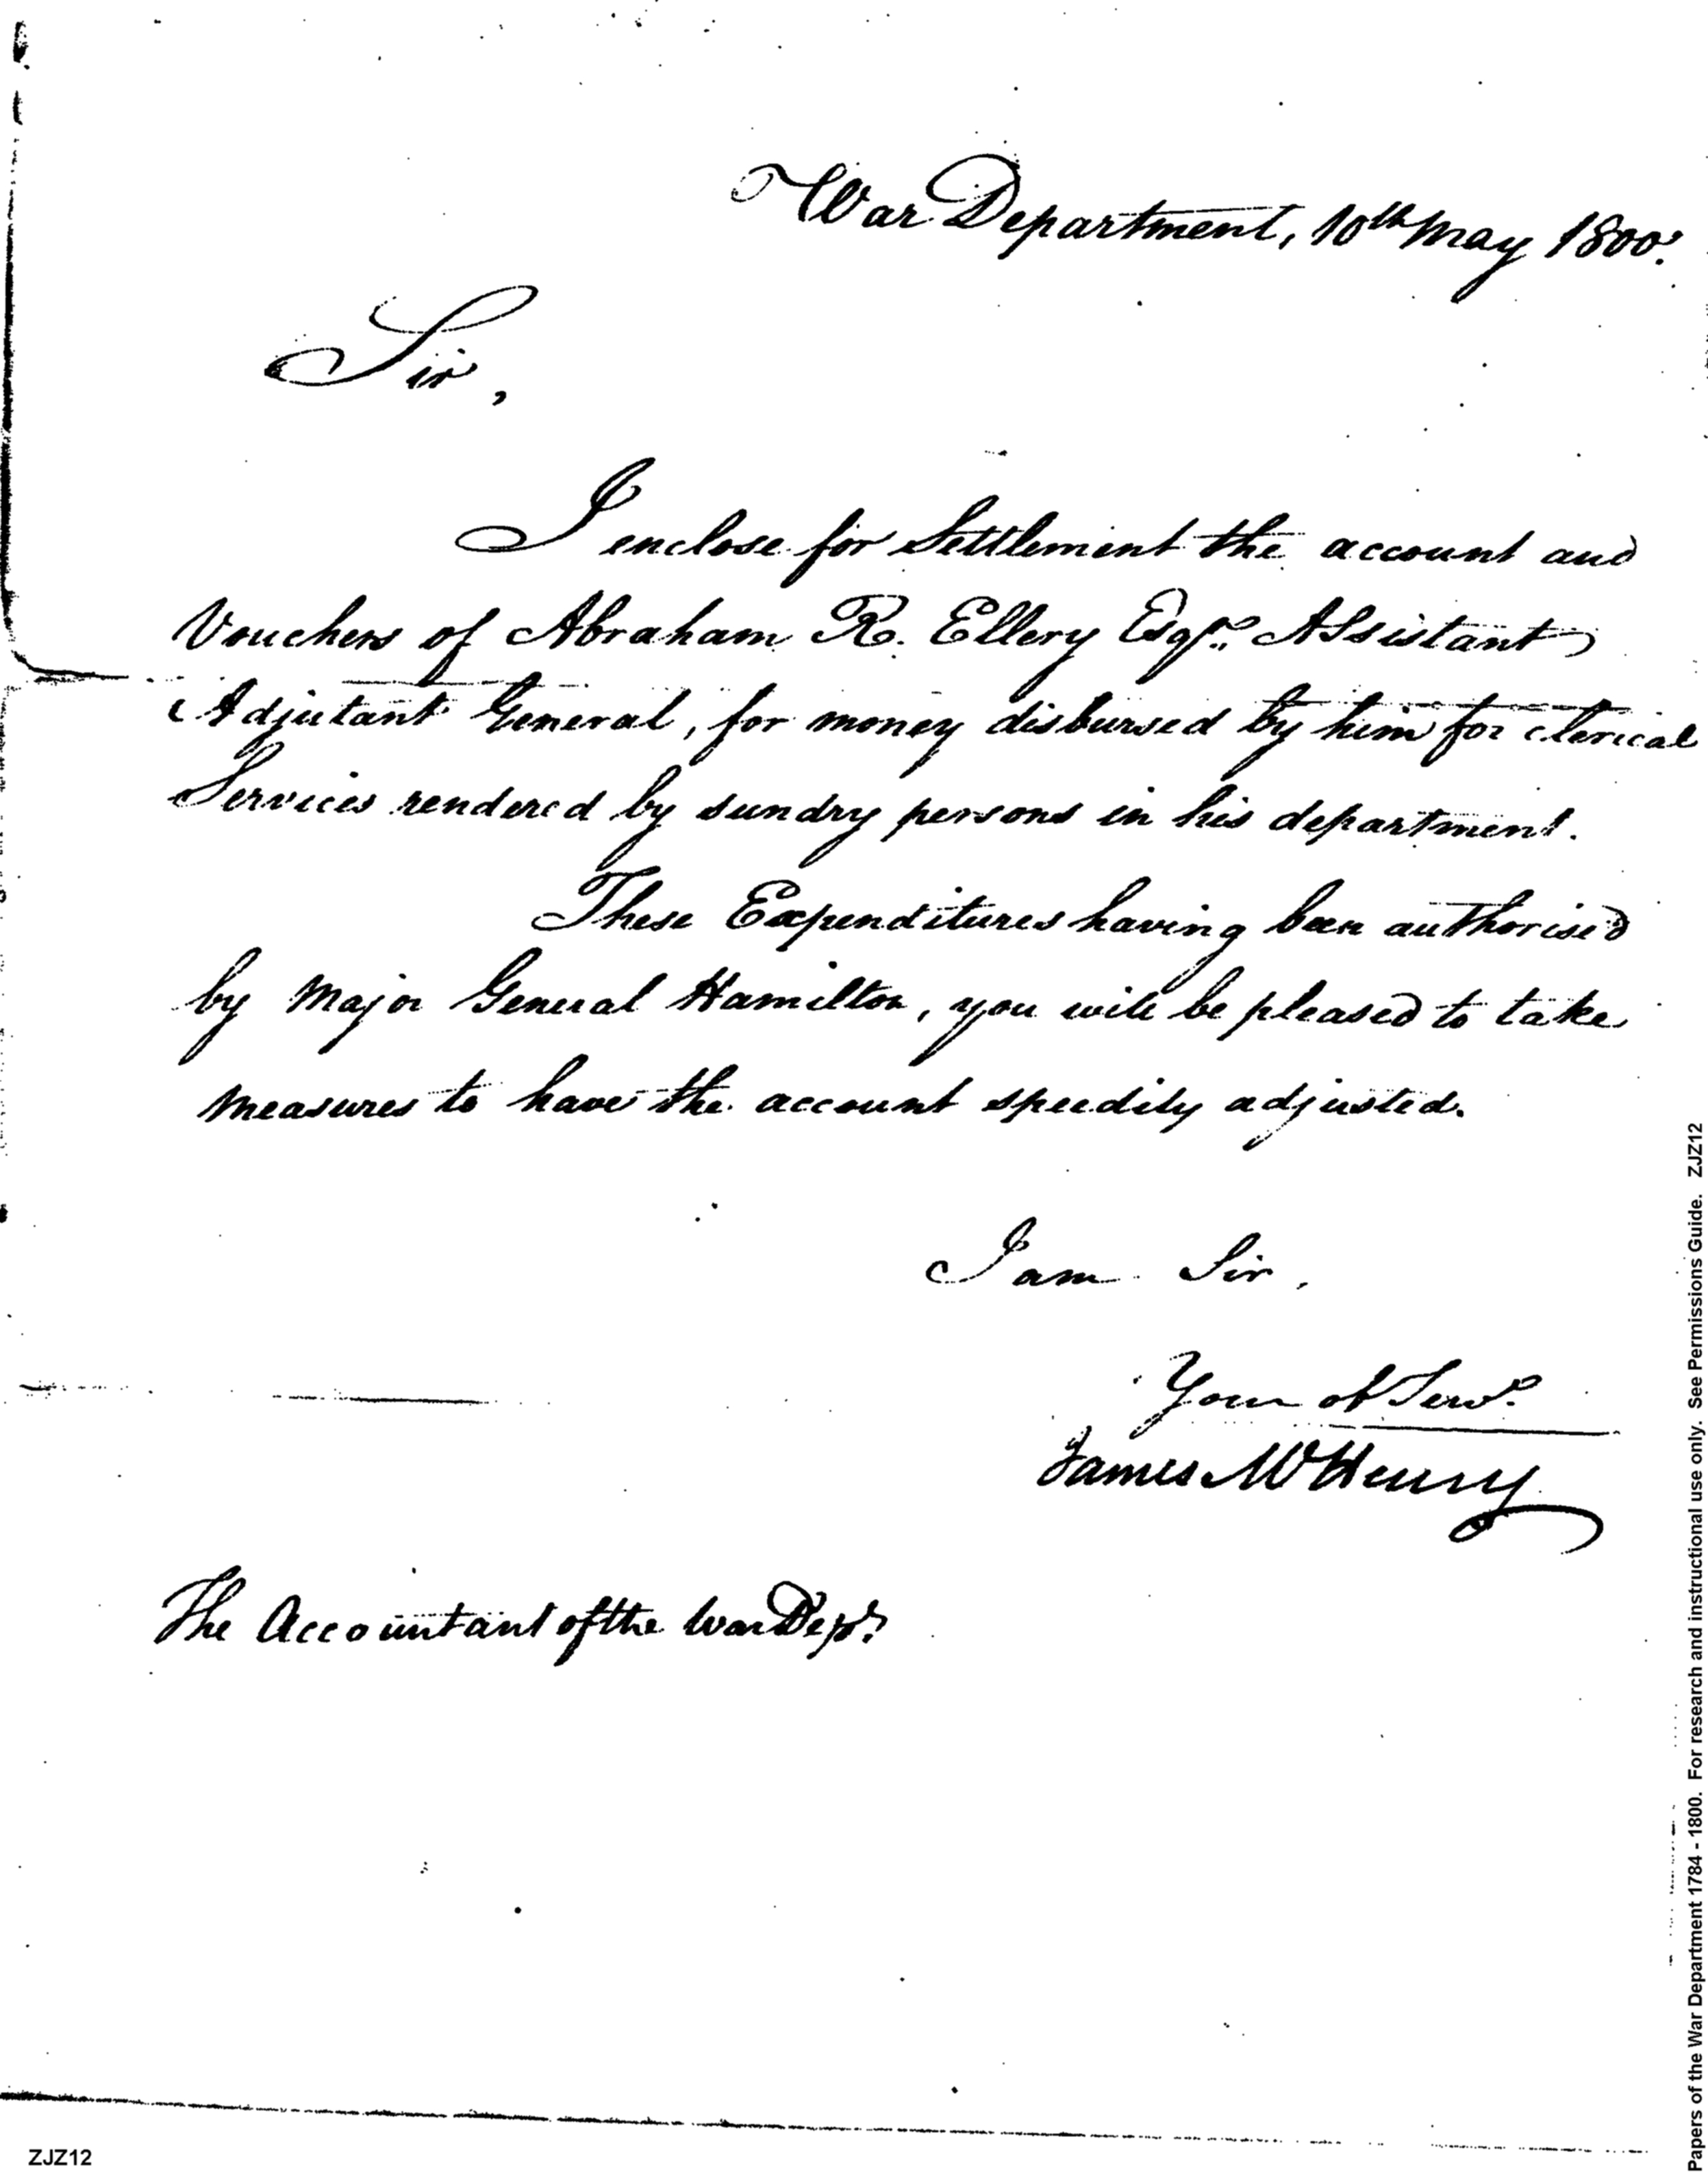 War Department, 10th May 1800.
Sir,
I enclose for Settlement the account and
Vouchers of Abraham R. Ellery Esqr. Assistant
Adjutant General, for money disbursed by him for clerical
Services rendered by sundry persons in his department.
These Expenditures having been authorised
by Major General Hamilton, you will be pleased to take
measures to have the account speedily adjusted.
I am Sir,
Your ob Servt.
James McHenry
The Accountant of the War Dept.
ZJZ12
Papers of the War Department 1784 - 1800. For research and instructional use only. See Permissions Guide. ZJZ12